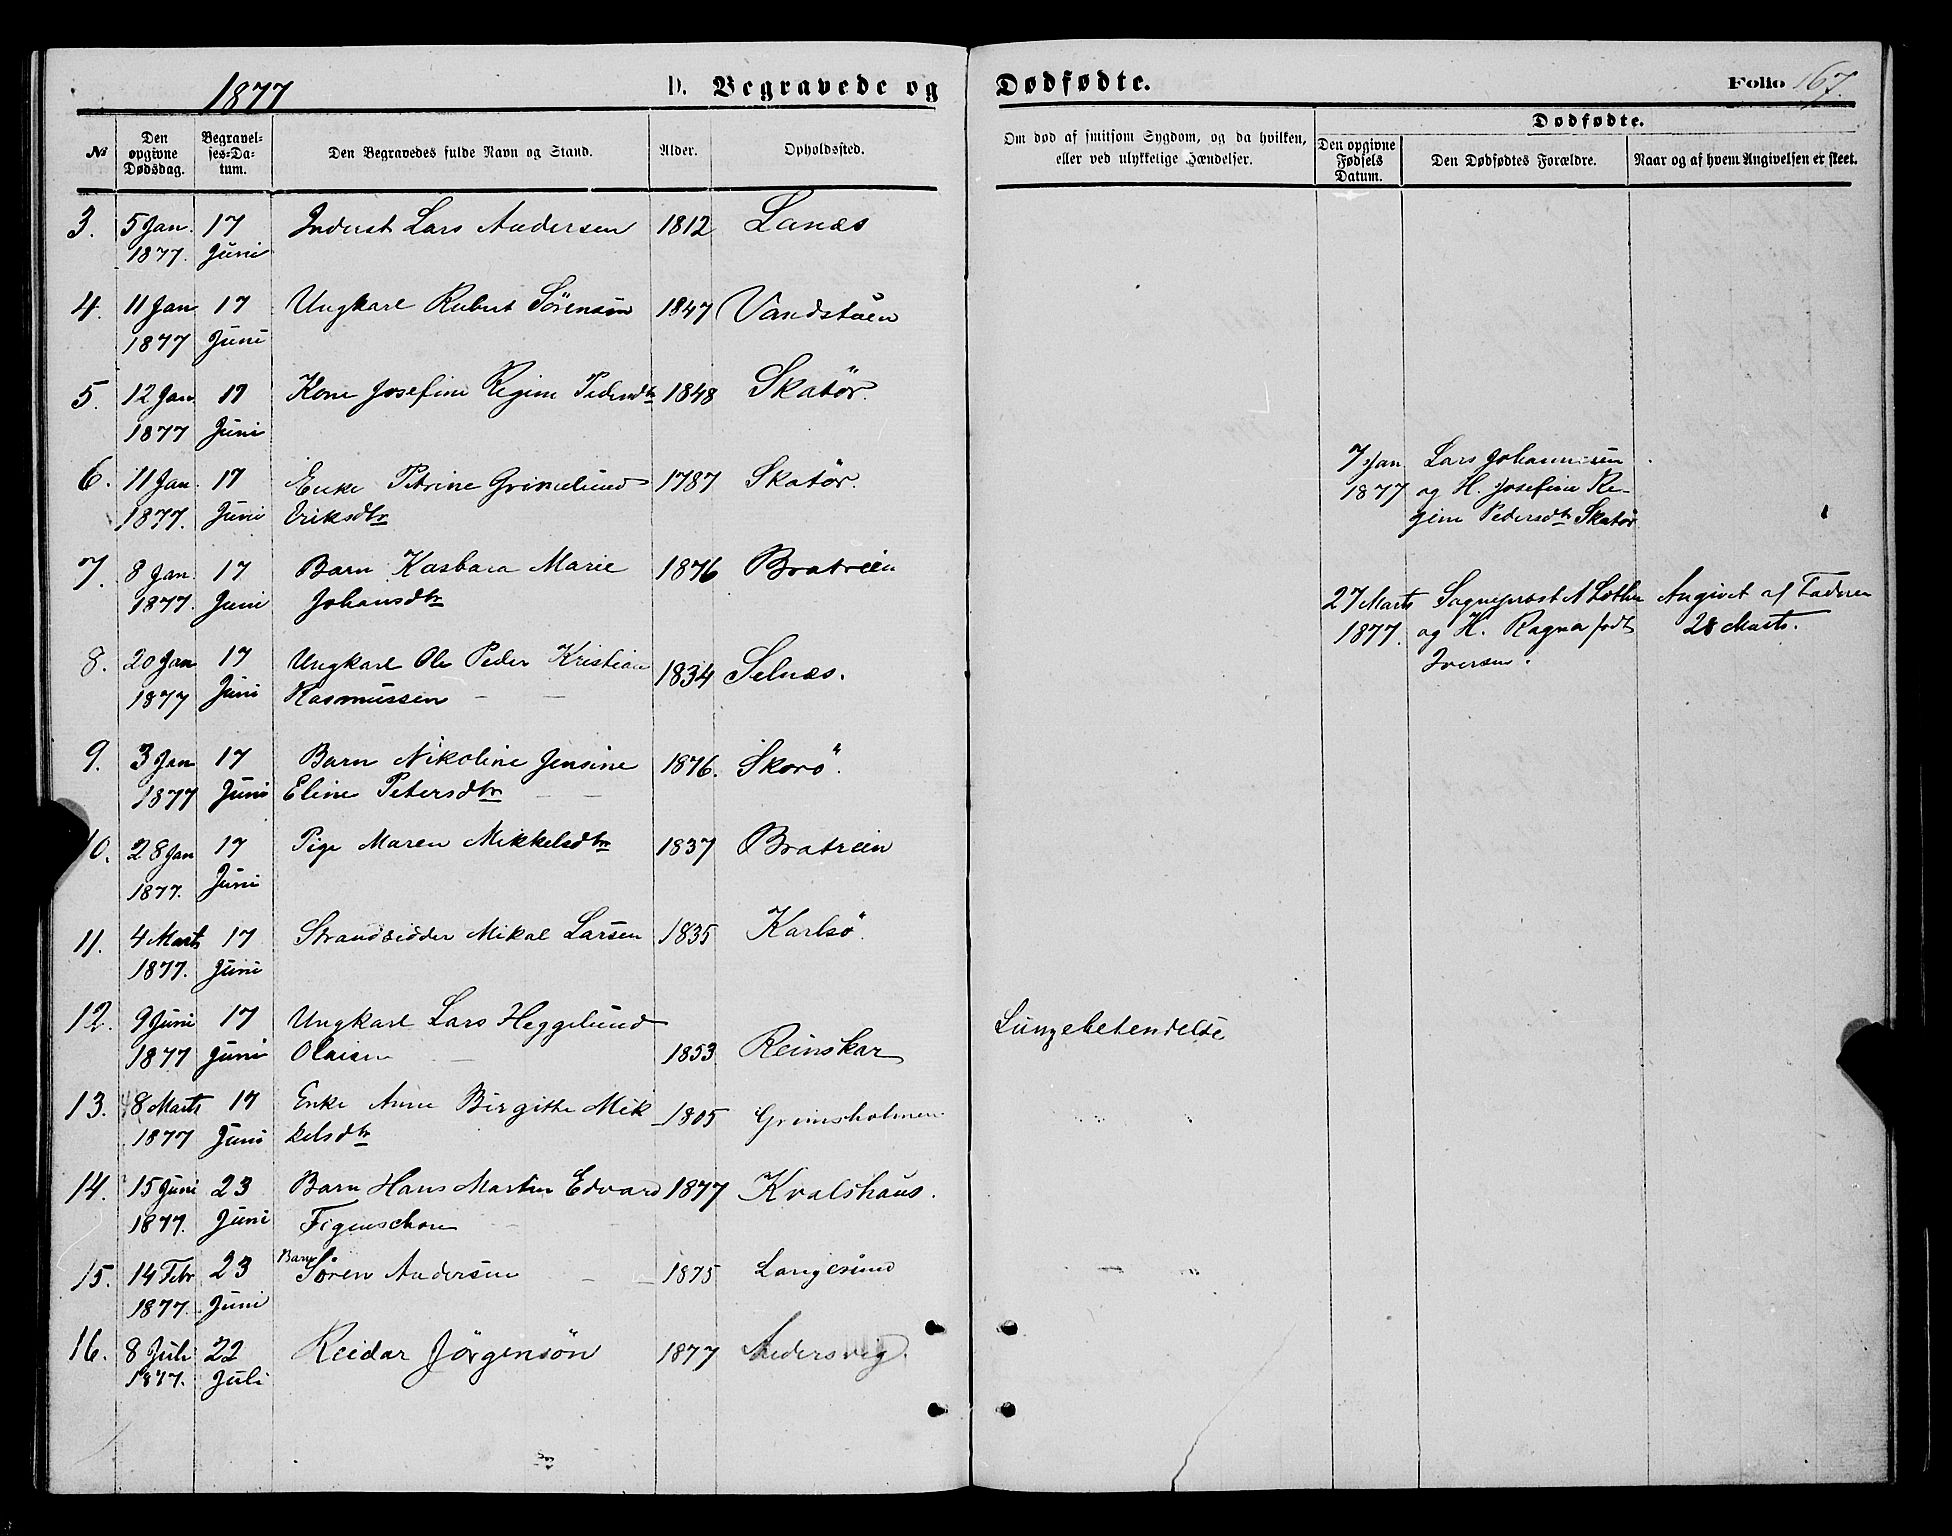 1877
D. Begravede og
Dødfødte.
Folio 167.
№
Den opgivne Dødsdag.
Begravelses-Datum.
Den Begravedes fulde Navn og Stand.
Alder.
Opholdssted.
Om død af smitsom Sygdom, og da hvilken, eller ved ulykkelige Hændelser.
Dødfødte.
Den opgivne Fødsels Datum.
Den Dødfødtes Forældre.
Naar og af hvem Angivelsen er skeet.
3. 5 Jan. 17 Inderst Lars Andersen 1812 Lanes
1877. Juni
4. 11 Jan 17 Ungkarl Rubert Sörensen 1847 Vandstuen
1877 Juni
5. 12 Jan 17 Kone Josefine Regine Pedersdtr 1848 Skatör.
1877 Juni
6. 11 Jan. 17 Enke Petrine Grönelund 1787 Skatör.
1877. Juni Eriksdtr
7 Jan Lars Johannesen
1877 og H. Josefine Re-
gine Pedersdtr Skatör
7. 8 Jan. 17 Barn Kasbara Marie 1876 Bratrein
1877. Juni Johansdtr
27 Marts Sognepræst A Lothe Angivet af Faderen
1877. og H. Ragna født 28 Marts.
Iversen.
8. 20 Jan 17 Ungkarl Ole Peder Kristian 1834 Selnæs.
1877 Juni Rasmussen
9. 3 Jan 17 Barn Nikoline Jensine 1876. Skorö.
1877 Juni Eline Petersdtr
10. 28 Jan 17 Pige Maren Mikkelsdtr 1837 Bratrein
1877. Juni
11. 4 Marts 17 Strandsidder Mikal Larsen 1835 Karlsö.
1877. Juni
12. 9 Juni 17 Ungkarl Lars Heggelund Lungebetendelse
1877 Juni Olaisen 1853 Reinskar
13. 8 Marts 17 Enke Anne Birgitte Mik 1805 Grimsholmen.
1877 Juni kelsdtr
14. 15 Juni 23 Barn Hans Martin Edvard 1877 Kvalshaus.
1877. Juni Figenschou
15. 14 Febr 23 Barn Sören Andersen 1875 Langesund
1877. Juni
16. 8 Juli 22 Reidar Jörgensön 1877 Andersvig.
1877. Juli